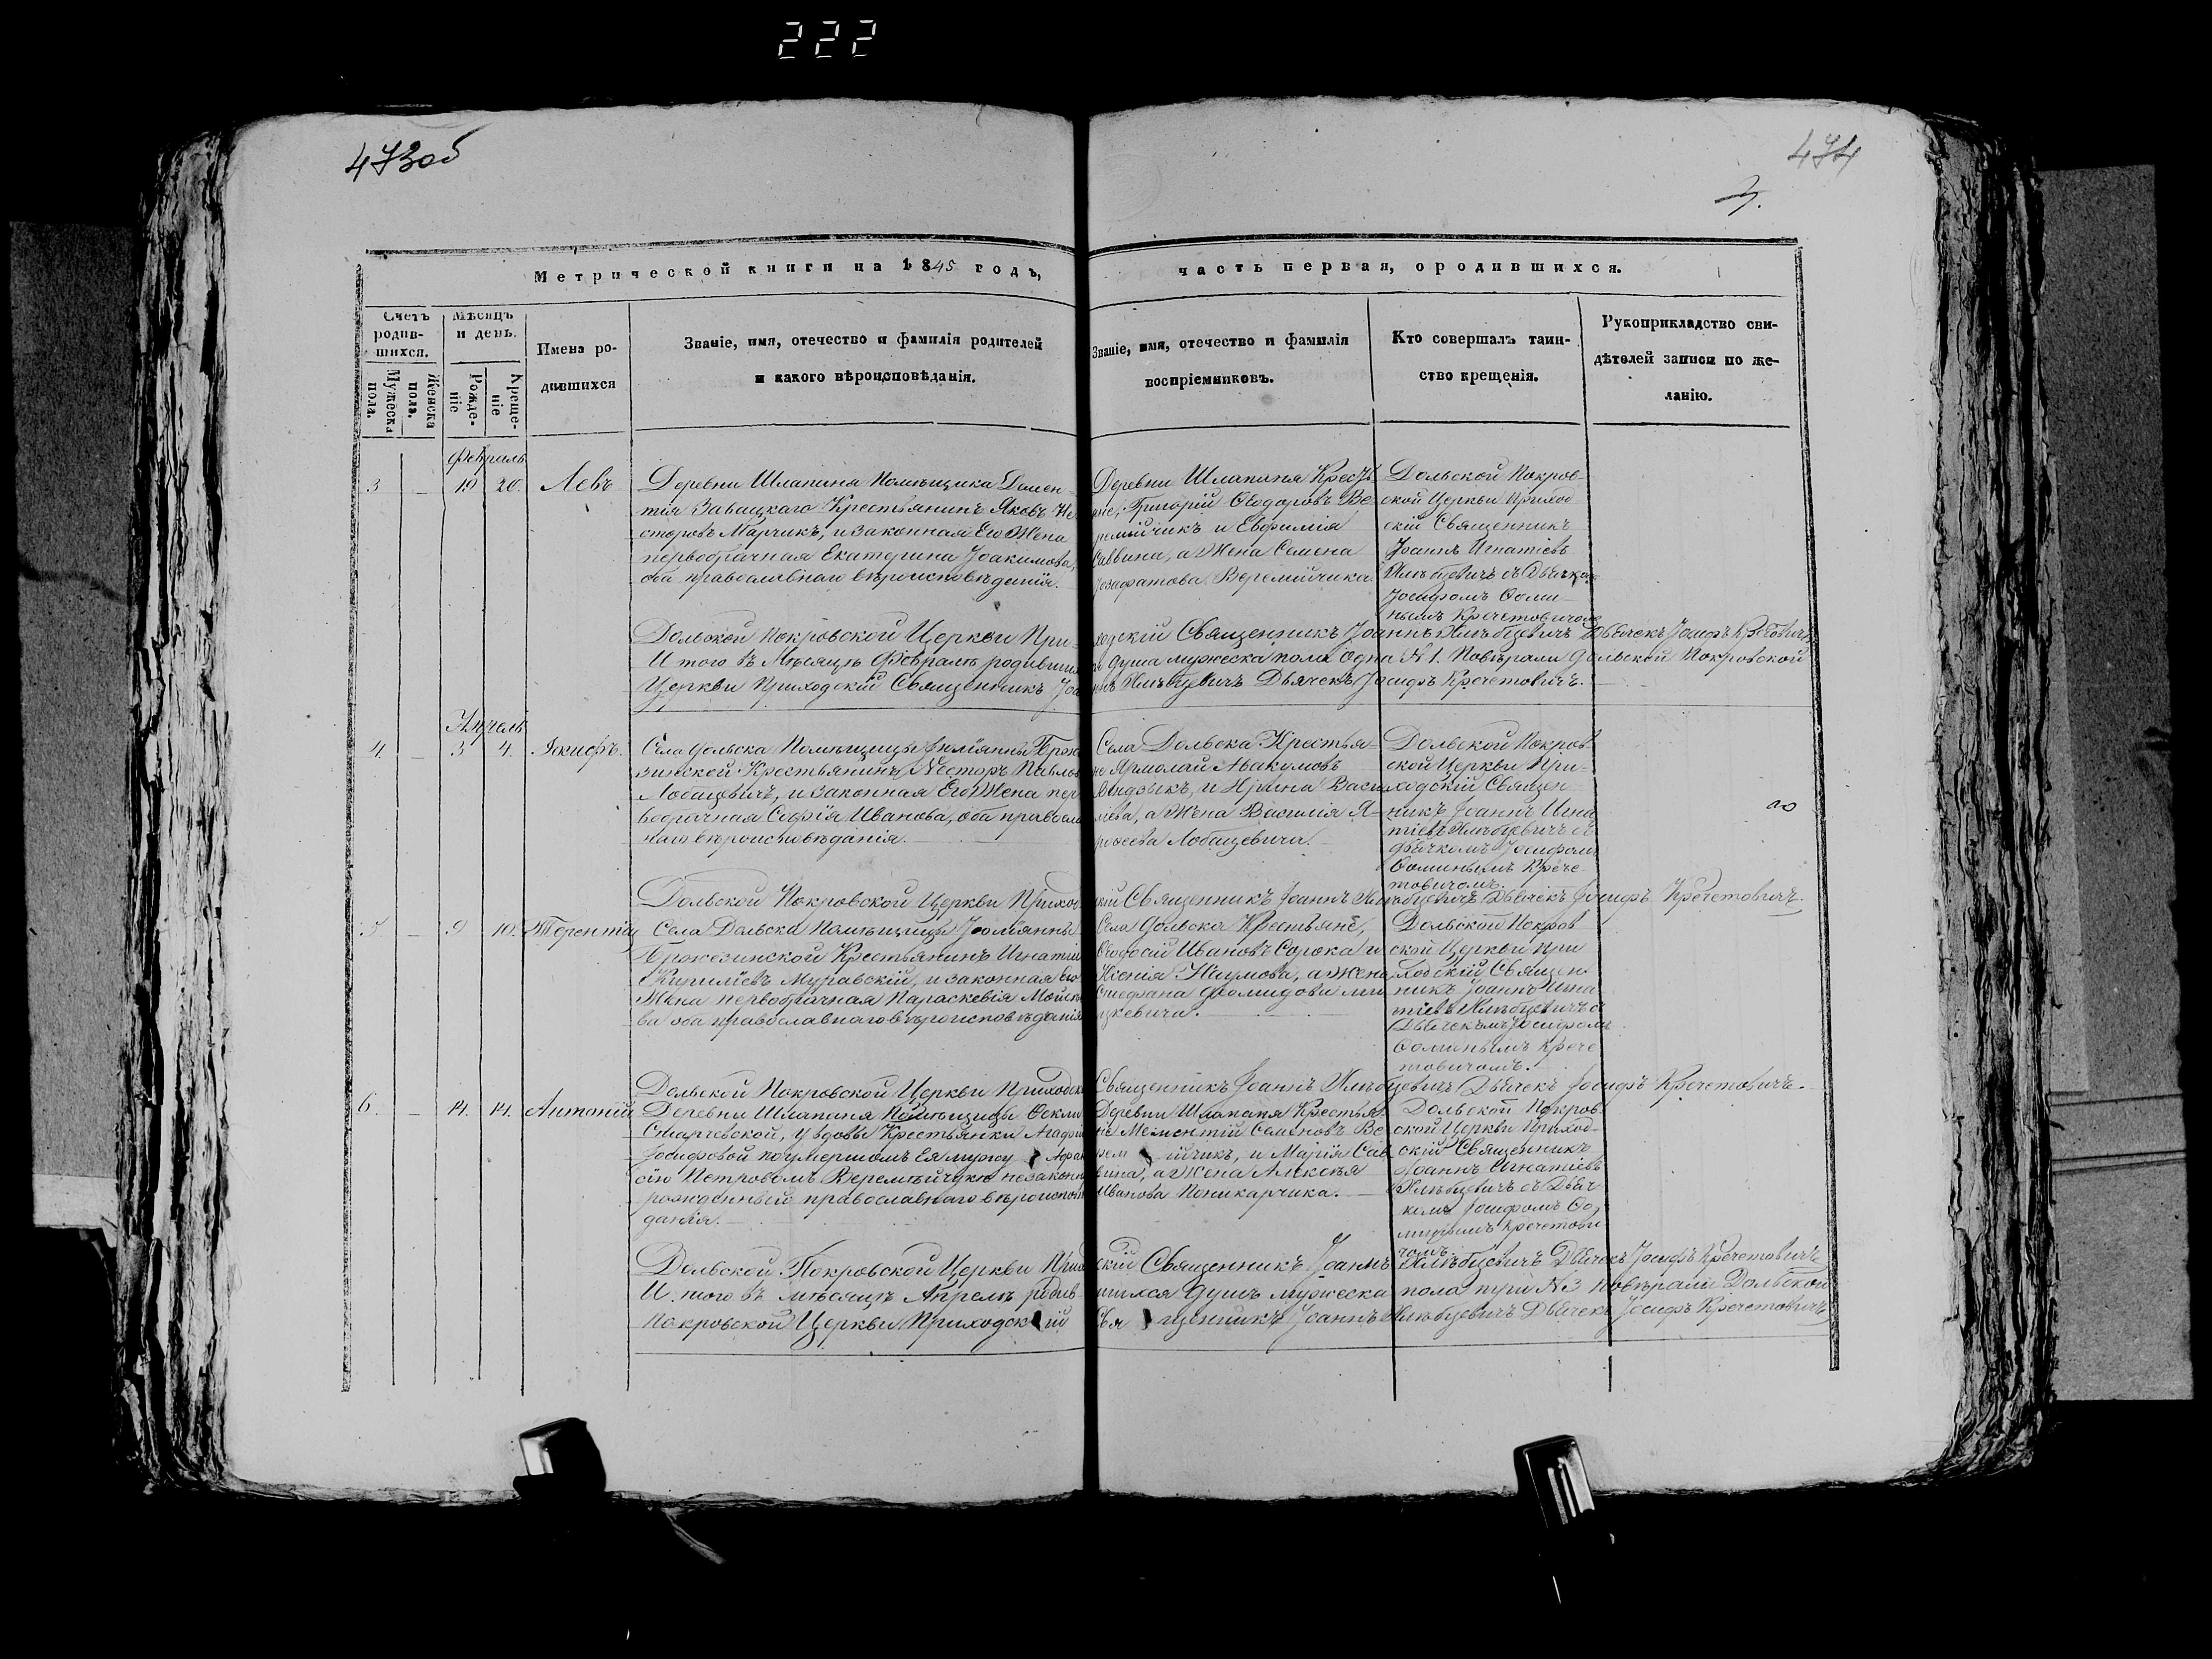 222
473об
474
3.
Метрической книги на 1845 годъ,
часть первая, ородившихся.
Счетъ родив-шихся.
Мужеска пола.
Женска пола.
Мѣсяцъ и день.
Рожде-ніе
Креще-ніе
Имена ро-дившихся
Званіе, имя, отечество и фамилія родителей
и какого вѣроисповѣданія.
Званіе, имя, отечество и фамилія
воспріемниковъ.
Кто совершалъ таин-
ство крещенія.
Рукоприкладство сви-
дѣтелей записи по же-
ланію.
Февраль
3 — 19 20. Левъ
Деревни Шлапаня Помѣщика Домен-
тія Завацкаго Крестьянинъ Яковъ Не-
сторовъ Марчикъ, и законная Его Жена
первобрачная Екатерина Іоакимова,
оба православнаго вѣроисповѣданія.
Деревни Шлапаня Крестья
не, Григорій Ѳеодоровъ Ве
ремійчикъ и Евфимія
Саввина, а Жена Семена
Іозафатова Веремійчика.
Дольской Покров-
ской Церкви Приход
скій Священникъ
Іоаннъ Игнатіевъ
Хлѣбцевичъ съ Дьячко
Іосифомъ Ѳоми-
нымъ Кречетовичомъ
Дольской Покровской Церкви При-
ходскій Священникъ Іоаннъ Хлѣбцевичъ Дьячекъ Іосифъ Кречетовичъ
И того въ Мѣсяцѣ Февралѣ родивша
я душа мужеска пола одна №1. Повѣряли Дольской Покровской
Церкви Приходскій Священникъ Іоа
ннъ Хлѣбцевичъ Дьячекъ Іосифъ Кречетовичъ.
Апрель
4. — 3 4.
Села Дольска Помѣщицы Юліянны Брже
зинской Крестьянинъ Несторъ Павловъ
Лобацевичъ, и законная Его Жена пер
вобрачная Софія Иванова, оба правосла
наго вѣроисповѣданія.
Села Дольска Крестья-
не Ярмолай Авакумовъ
и Ирина Васи
лѣва, а Жена Василія Я-
Лобацевича.
Дольской Покров
ской Церкви При-
ходскій Священ
никъ Іоаннъ Игна
тіевъ Хлѣбцевичъ съ
дьячкомъ Іосифомъ
Ѳоминымъ Крече-
товичомъ.
Дольской Покровской Церкви Приход
скій Священникъ Іоаннъ Хлѣбцевичъ Дьячекъ Іосифъ Кречетовичъ
5. — 9 10. Терентій
Села Дольска Помѣщицы Юліянны
Бржезинской Крестьянинъ Игнатій
Кирилѣвъ Муравскій, и законная Его
Жена первобрачная Параскевія Мойсѣе
ва оба православнаго вѣроисповѣданія
Села Дольска Крестьяне,
Ѳеодосій Ивановъ Сорока и
Ксенія Наумова, а Жена
Стефана Ми
цкевича.
Дольской Покров
ской Церкви При
ходскій Священ
никъ Іоаннъ Игна
тіевъ Хлѣбцевичъ съ
Дьячекомъ Іосифомъ
Ѳоминымъ Крече
товичомъ.
Дольской Покровской Церкви Приходск
Священникъ Іоаннъ Хлѣбцевичъ Дьячекъ Іосифъ Кречетовичъ.
6. — 14. 14. Антоній
Деревни Шлапаня Помѣщицы Ѳекли
у вдовы Крестьянки Агафіи
Іосифовой поумершомъ Ея мужу
Петровомъ Веремѣйчуку незаконно
рожденный православнаго вѣроисповѣ
данія.
Деревни Шлапаня Крестья-
не Мементій Семеновъ Ве
рем ійчикъ, и Марія Сав
вина, а Жена Алексѣя
Иванова Поникарчика.
Дольской Покров-
ской Церкви Приход-
скій Священникъ
Іоаннъ Игнатіевъ
Хлѣбцевичъ съ Дьяч
комъ Іосифомъ Ѳо
минымъ Кречетови
чомъ.
Дольской Покровской Церкви Прихо
скій Священникъ Іоаннъ Хлѣбцевичъ Дьячекъ Іосифъ Кречетовичъ
И того въ мѣсяцѣ Апрелѣ родив-
шихся душъ мужеска пола три №3 Повѣряли Дольской
Покровской Церкви Приходскій
Священникъ Іоаннъ Хлѣбцевичъ Дьячекъ Іосифъ Кречетовичъ